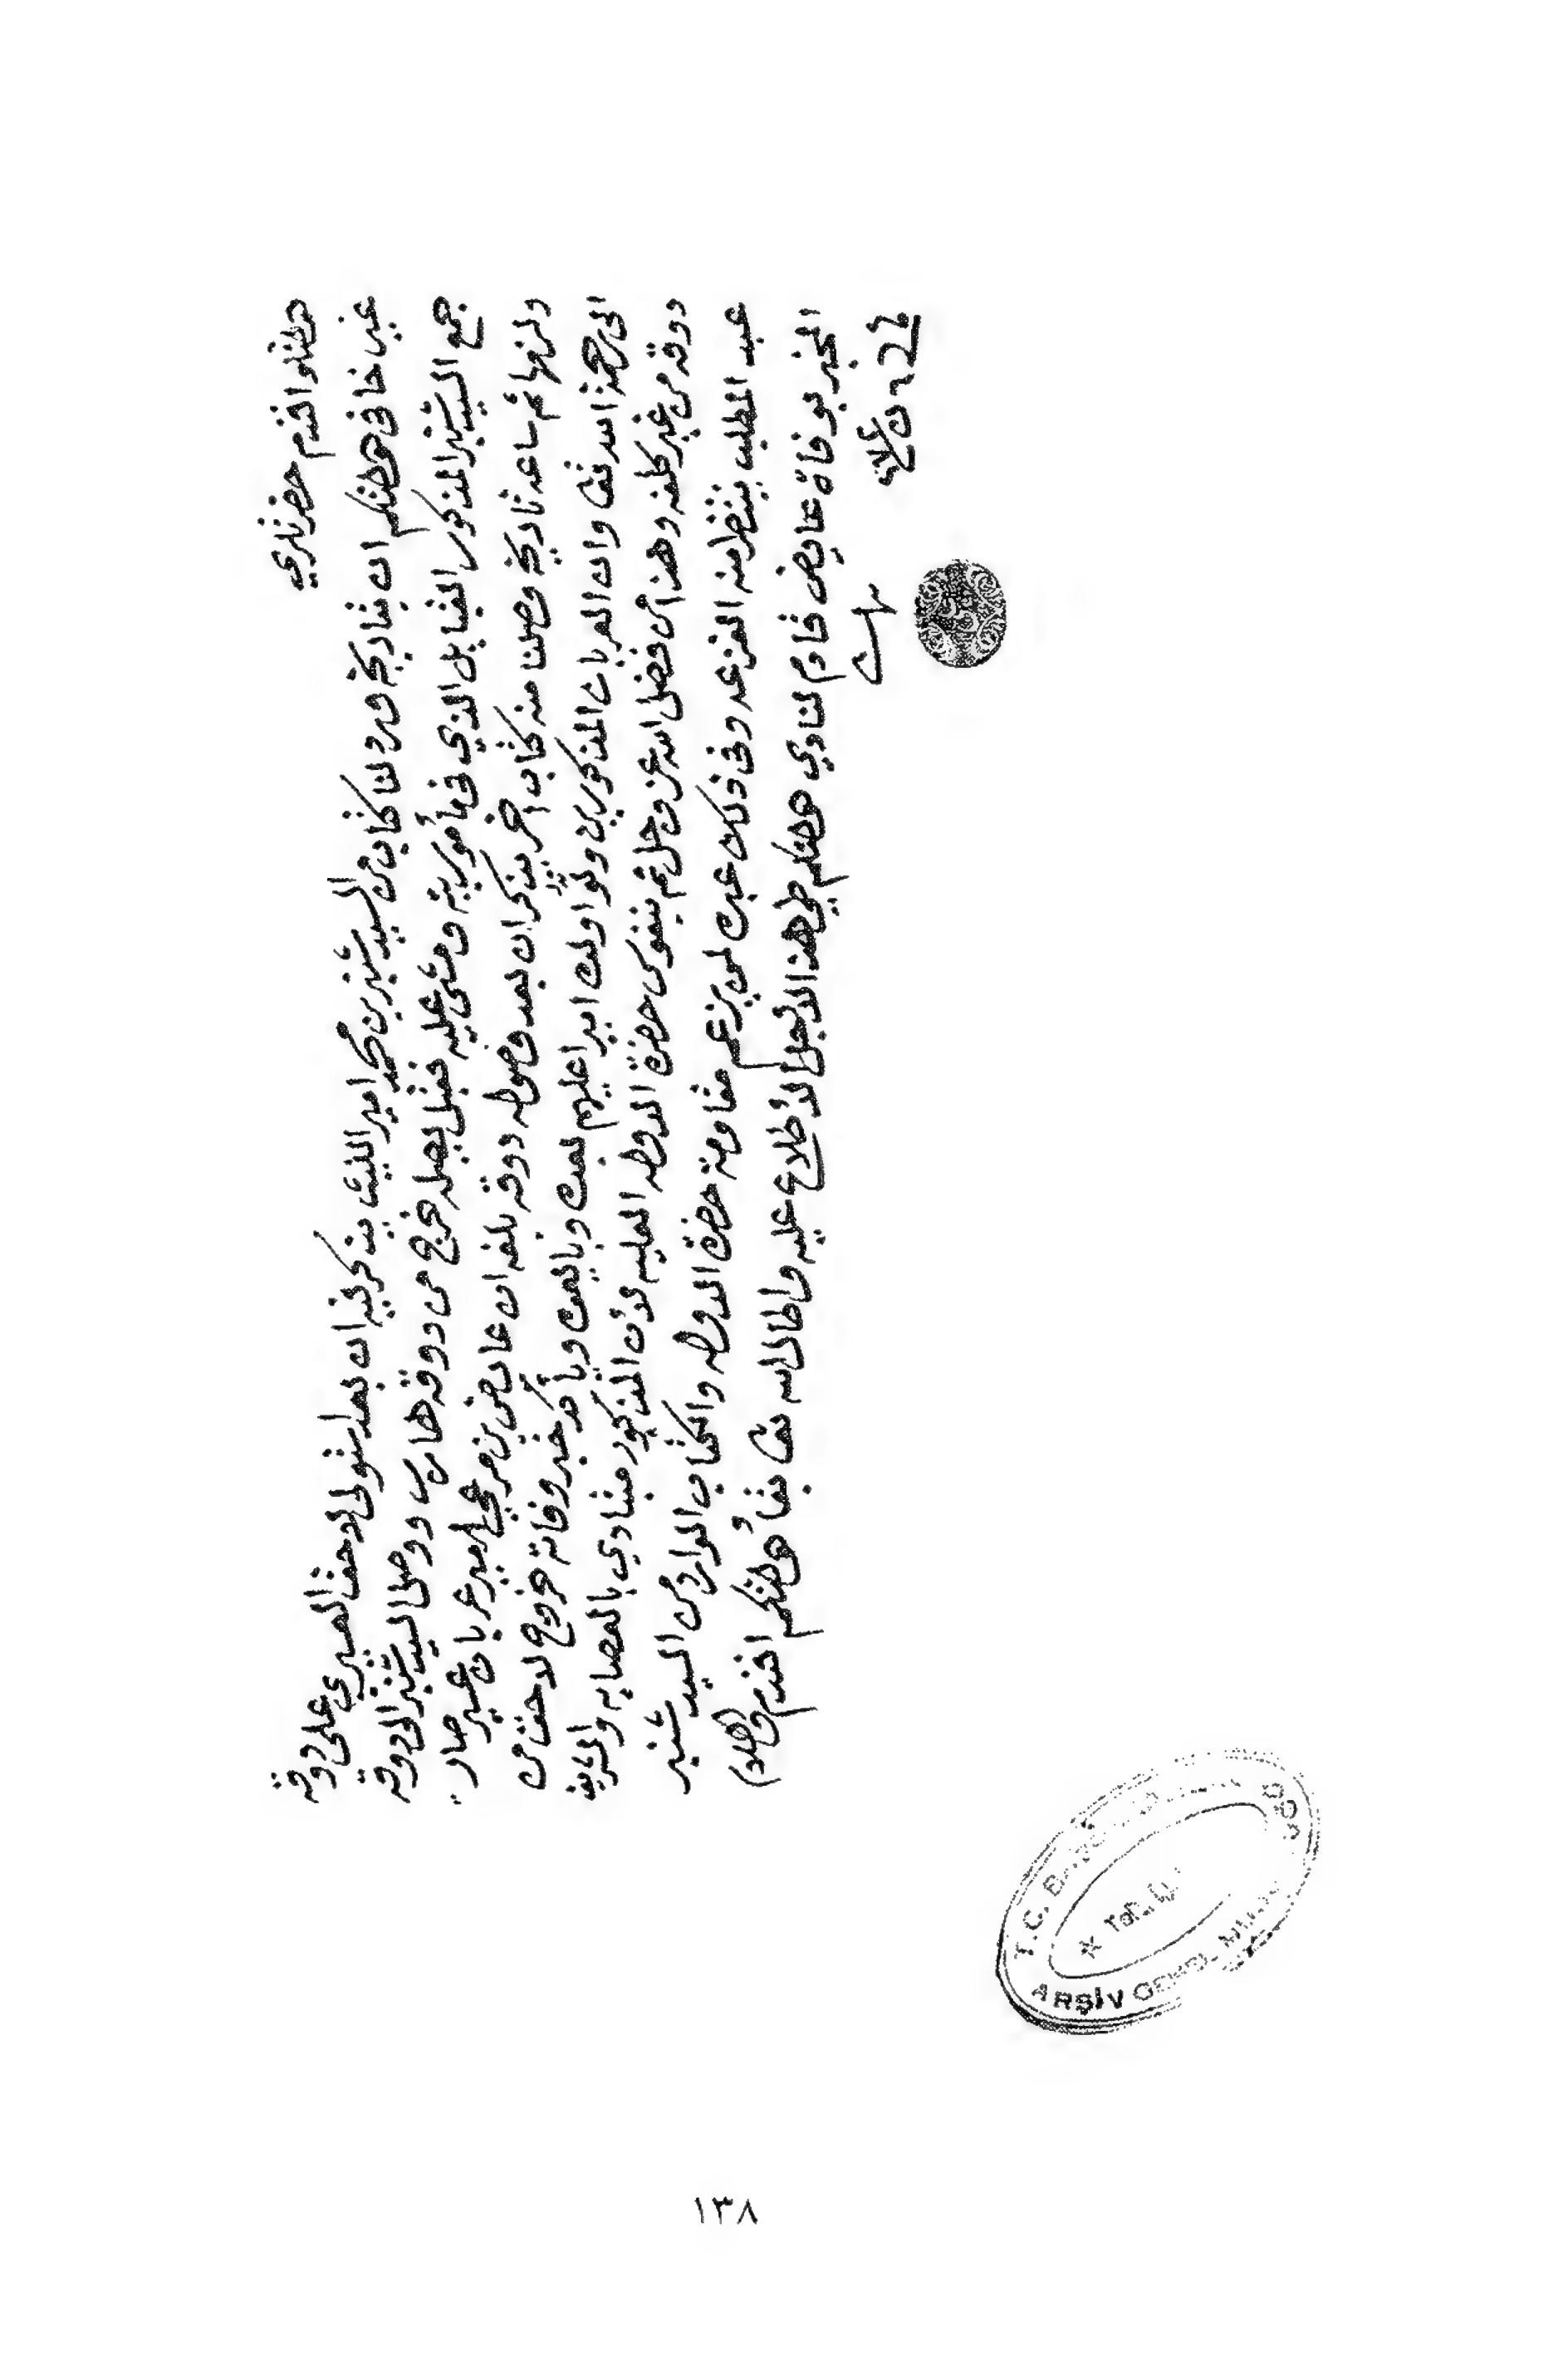 دولتلو افندم حضرتلري
غير خافى دولتكم ان بتاريخه ورد لنا كتاب من السيد شنبر بن محمد امير الليث يذكر فيه ان بعد استولى لاحق العسيري على دوقه
جمع السيد شنبر المذكور القبايل الذي في مأموريته ومشى عليه فقبل يصله خرج من دوقه هارب ووصل السيد شنبر الى دوقه
ولزمها ثم ساعة تاريخه وصلنا منه كتاب اخر يذكر ان بعد وصوله دوقه بلغه ان عايض بن مرعي امير عربان عسير صار
الى رحمة الله تعا وان العربان المذكورين ولوا ولده اميرا عليهم بعده وبايعوه ويأكد خبر وفاته خروج لاحق من
دوقه من غير كلفه وهذا من فضل الله عز وجل ثم بنفوس حضرة الدوله العليه لأن المذكور متبادي بالعصايه والشريف
عبد المطلب ينتظر منه الفزعه وفى ذلك عبره لمن يزعم مقاومة حضرة الدوله والكتاب الوارد من السيد شنبر
المخبر بوفاة عايض قادم لنادي دولتكم طي هذا لاجل الاطلاع عليه واطال الله تعا بقاء دولتكم افندم